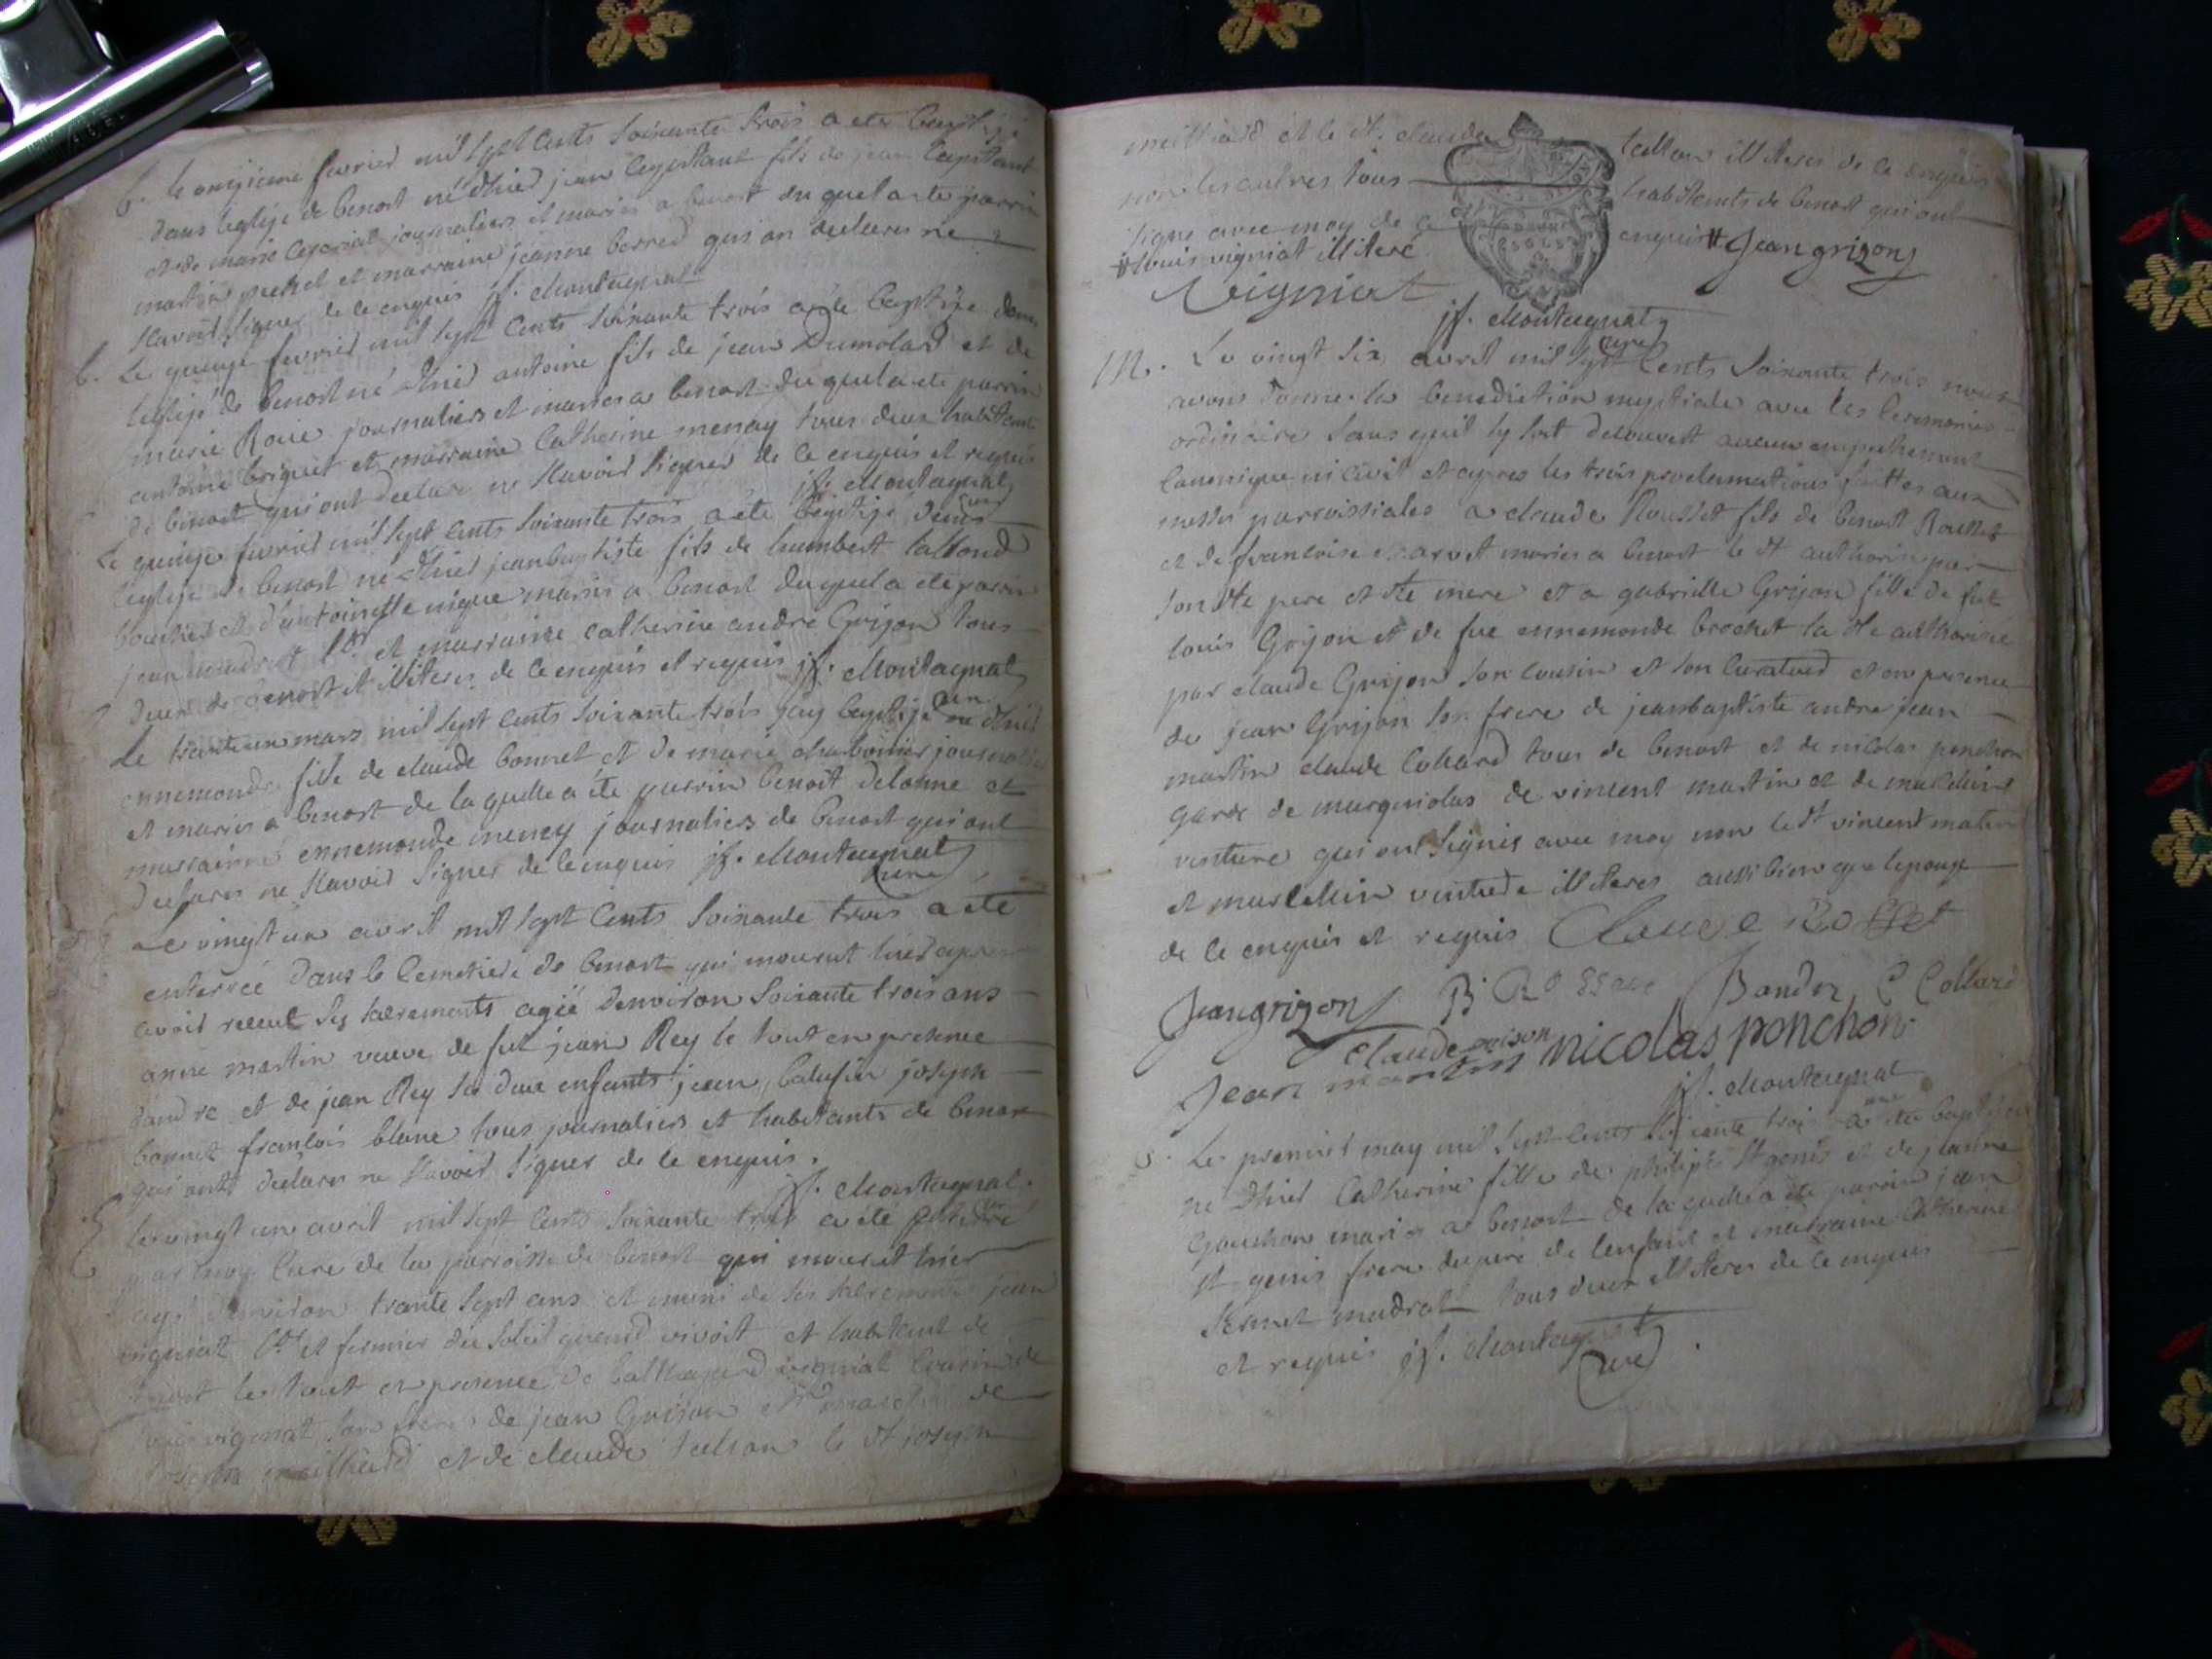 b. le onzieme fevrier mil sept cents soixante trois a ete baptizé
dans leglize de benost né dhier jean fils de jean
et de marie journaliers et mariés a benost du quel a ete parrin
martin et marraine jeanne qui on declares ne
scavoir signer de ce enquis jf. Montagnat
b. Le quinze fevrier mil sept cents soixante trois a ete baptize dans
leglize de benost né dhier antoine fils de jean Dumolard et de
marie Roux journaliers et mariés a benost du quel a ete parrin
antoine briquet et marraine catherine menay tous deux habitants
de benost qui ont declare ne scavoir signer de ce enquis et requis
jf. Montagnat curé
Le quinze fevrier mil sept cents soixante trois a été baptizé dans
leglize de benost né dhier jeanbaptiste fils de humbert
et dantoinette mariés a benost du quel a eté parrin
jean et marraine catherine andre Grizon tous
deux de benost et illiteres de ce enquis et requis jf. Montagnat
curé
Le trante un mars mil sept cents soixante trois jay baptizé née dhier
ennemonde fille de claude bonnet et de marie charbonier journaliers
et mariés a benost de laquelle a éte parrin benoit delorme et
marrainne ennemonde menay journaliers de benost qui ont
declares ne scavoir signer de ce enquis jf. Montagnat
curé
Le vingt un avril mil sept cents soixante trois a eté
enterréé dans le cemetiere de benost qui mourut hier apres
avoir receut ses sacrements agéé denviron soixante trois ans
anne martin veuve de fut jean Rey le tout en presence
dandre et de jean Rey ses deux enfants jean joseph
bonnet francois blanc tous journaliers et habitants de benost
qui ont declares ne scavoir signer de ce enquis.
jf. Montagnat.
le vingt un avril mil sept cents soixante trois a été
par moy curé de la parroisse de benost qui mourut hier
agé denviron trante sept ans et muni de ses sacrements jean
vigniat et fermier du soleil quand vivoit et habitant de
benost le tout en presence de balthazard vigniat cousin de
louis vigniat son frere de jean Grizon de
joseph meilliard et de claude tallon le dt joseph
meilliard et le dt. claude tallon illiteres de ce enquis
non les autres tous habitants de benost qui ont
signé avec moy de ce enquis # Jean grizon
# louis vigniat illiteré
Vigniat
jf. Montagnat
curé
M. Le vingt six avril mil sept cents soixante trois nous
avons donné la benediction nuptiale avec les ceremonies
ordinaire sans quil sy soit decouvert aucun empechement
canonique ni civil et apres les trois proclamations faittes aux
messes parroissiales a claude Rousset fils de benost Rousset
et de francoise mariés a benost le dt authorisé par
son dt pere et dte mere et a gabrielle Grizon fille de fut
louis Grizon et de fue ennemonde brochet la dte authorisée
par claude Grizon son cousin et son curateur et en presence
de jean Grizon son frere de jeanbaptiste andre jean
martin claude Collard tous de benost et de nicolas ponchon
garde de marquiolas de vincent martin et de marcellin
venture qui ont signés avec moy non le dt vincent martin
et marcellin venture illiteres aussi bien que lepouse
de ce enquis et requis Claude Rosset
Jean grizon B Rossait Bandre C Collard
claude grison
Jean martin nicolas ponchon
jf. Montagnat
curé
b. Le premier may mil sept cents soixante trois a ete baptizée
né dhier catherine fille de philipe St genis et de jeanne
Gouchon mariés a benost de laquelle a été parrin jean
st genis frere du pere de lenfant et marraine Catherine
tous deux illiteres de ce enquis
et requis jf. Montagnat
curé